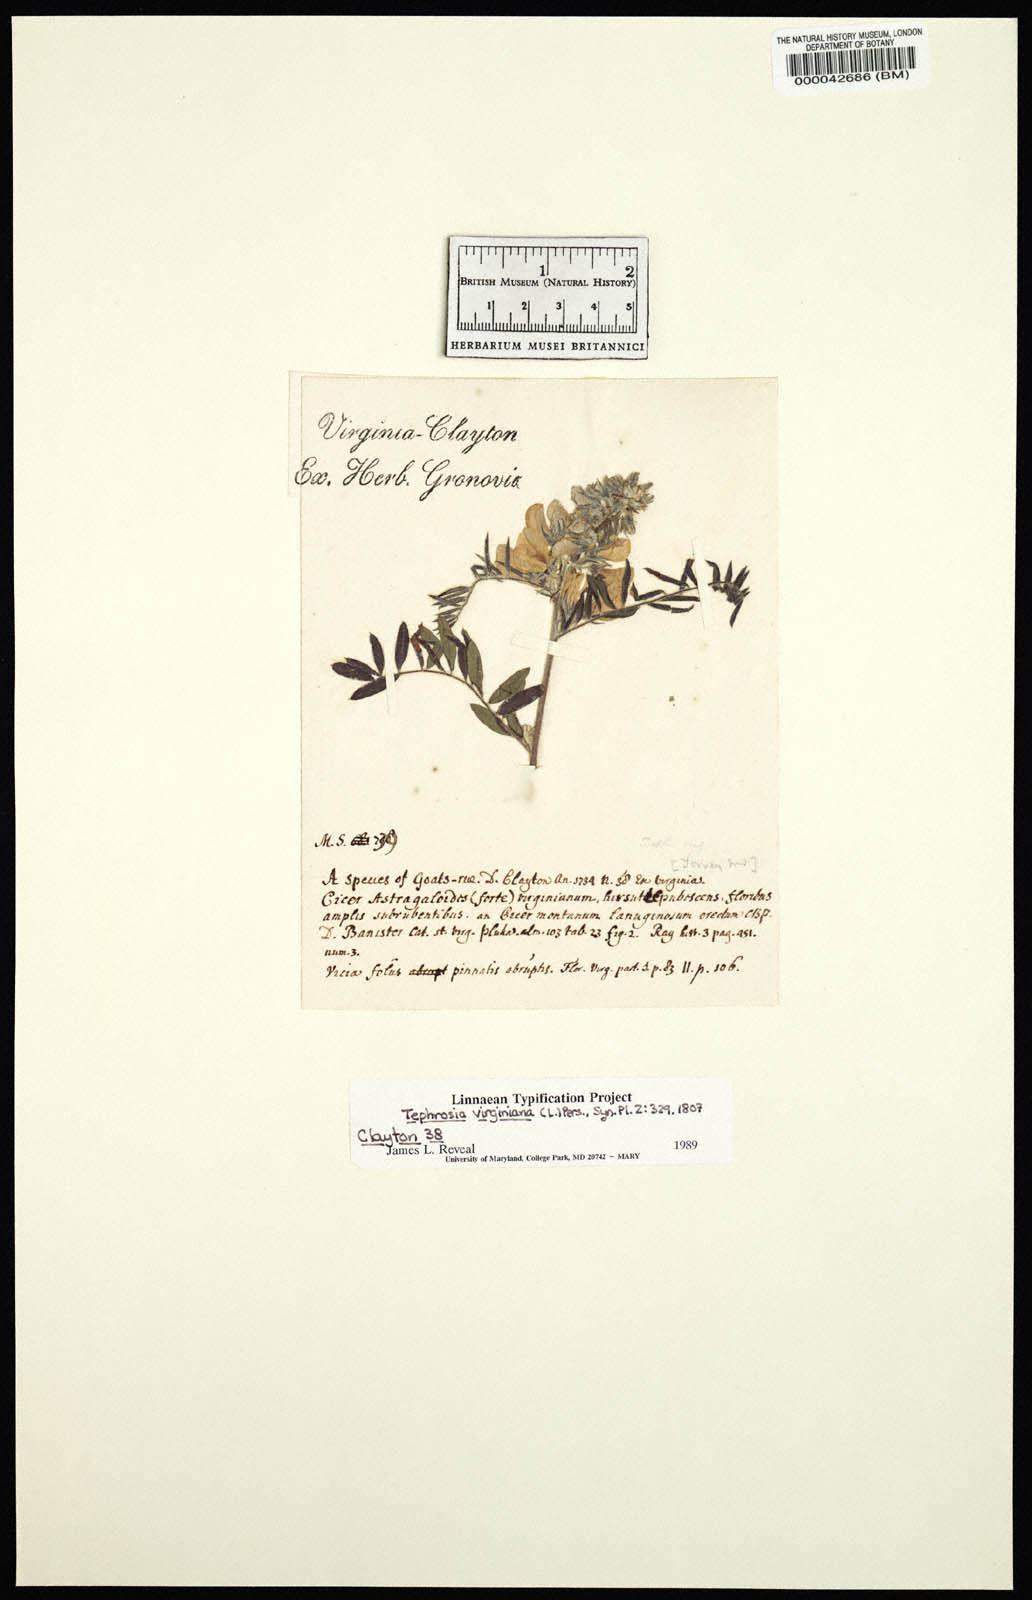 THE NATURAL HISTORY MUSEUM, LONDON
DEPARTMENT OF BOTANY
000042686 (BM)
1 2
BRITISH MUSEUM (NATURAL HISTORY)
1 2 3 4 5
HERBARIUM MUSEI BRITANNICI
Virginia-Clayton
Ex. Herb. Gronovii
M.S. 38
A species of Goats-rue. D. Clayton An. 1734 n. 38 Ex Virginia.
Cicer Astragaloides (forte) virginianum, hirsutie pubescens, floribus
amplis subrubentibus. an Cicer montanum lanuginosum erectum
D. Banister Cat. st. virg. Pluk. alm. 103 tab. 23 fig. 2. Ray hist. 3 pag. 451.
num. 3.
Vicia foliis abrupt pinnatis abruptis. Flor. Virg. part. 1 p. 83 II. p. 106.
Linnaean Typification Project
Tephrosia virginiana (L.) Pers., Syn. Pl. 2: 329. 1807
Clayton 38
James L. Reveal 1989
University of Maryland, College Park, MD 20742 – MARY